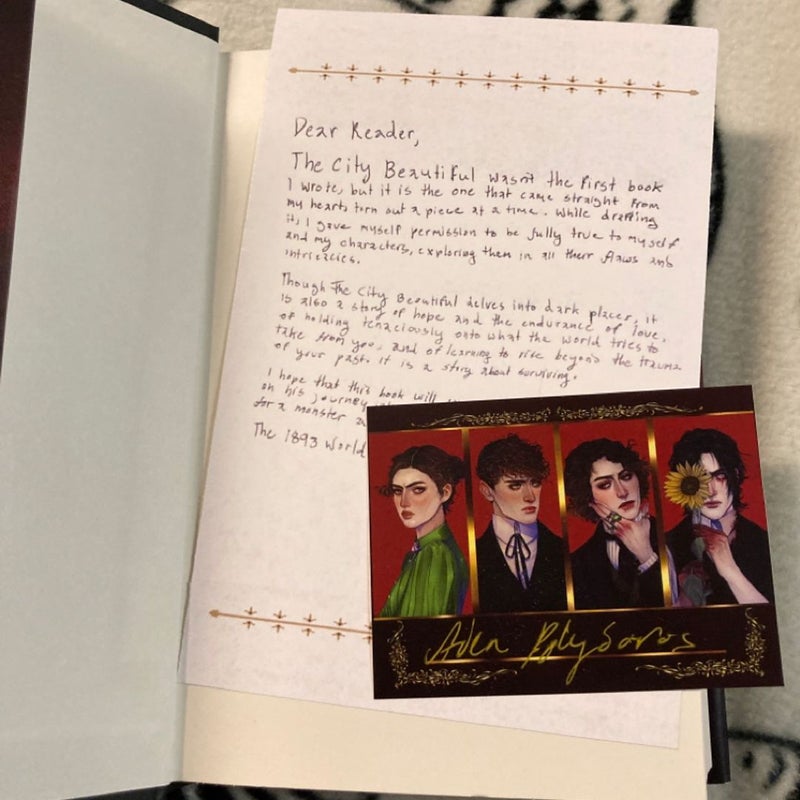 Dear Reader,
The City Beautiful wasn't the first book
I wrote, but it is the one that came straight from
my heart, torn out a piece at a time. While drafting
it, I gave myself permission to be fully true to myself
and my characters, exploring them in all their flaws and
intricacies.
Though The City Beautiful delves into dark places, it
is also a story of hope and the endurance of love,
of holding tenaciously onto what the world tries to
take from you, and of learning to rise beyond the trauma
of your past. It is a story about surviving.
I hope that this book will
on his journey
for a monster
The 1893 World
Aden Polydoros